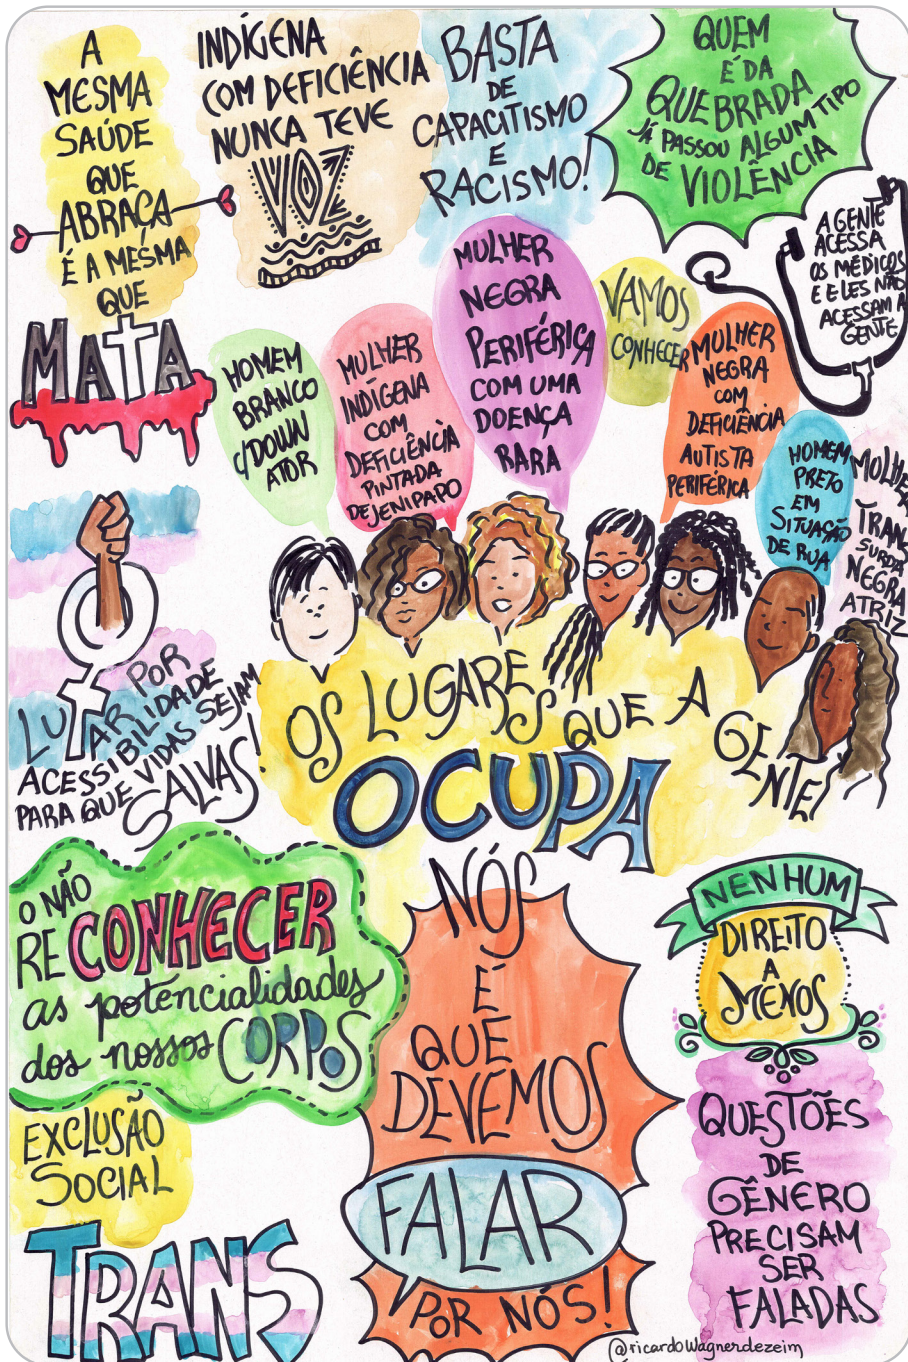 A
MESMA
SAÚDE
QUE
ABRAÇA
É A MESMA
QUE
MATA
INDÍGENA
COM DEFICIÊNCIA
NUNCA TEVE
VOZ
BASTA
DE
CAPACITISMO
E
RACISMO!
QUEM
É DA
QUEBRADA
JÁ PASSOU ALGUM TIPO
DE VIOLÊNCIA
A GENTE
ACESSA
OS MÉDICOS
E ELES NÃO
ACESSAM A
GENTE
HOMEM
BRANCO
C/DOWN
ATOR
MULHER
INDÍGENA
COM
DEFICIÊNCIA
PINTADA
DE JENIPAPO
MULHER
NEGRA
PERIFÉRICA
COM UMA
DOENÇA
RARA
VAMOS
CONHECER
MULHER
NEGRA
COM
DEFICIÊNCIA
AUTISTA
PERIFÉRICA
HOMEM
PRETO
EM
SITUAÇÃO
DE RUA
TRANS
SURDA
NEGRA
ATRIZ
LUTAR POR
ACESSIBILIDADE
PARA QUE VIDAS SEJAM
SALVAS!
OS LUGARES QUE A GENTE
OCUPA
O NÃO
RECONHECER
as potencialidades
dos nossos CORPOS
NÓS
É
QUE
DEVEMOS
FALAR
POR NÓS!
NENHUM
DIREITO
A
MENOS
EXCLUSÃO
SOCIAL
TRANS
QUESTÕES
DE
GÊNERO
PRECISAM
SER
FALADAS
@ricardoWagnerdezeim